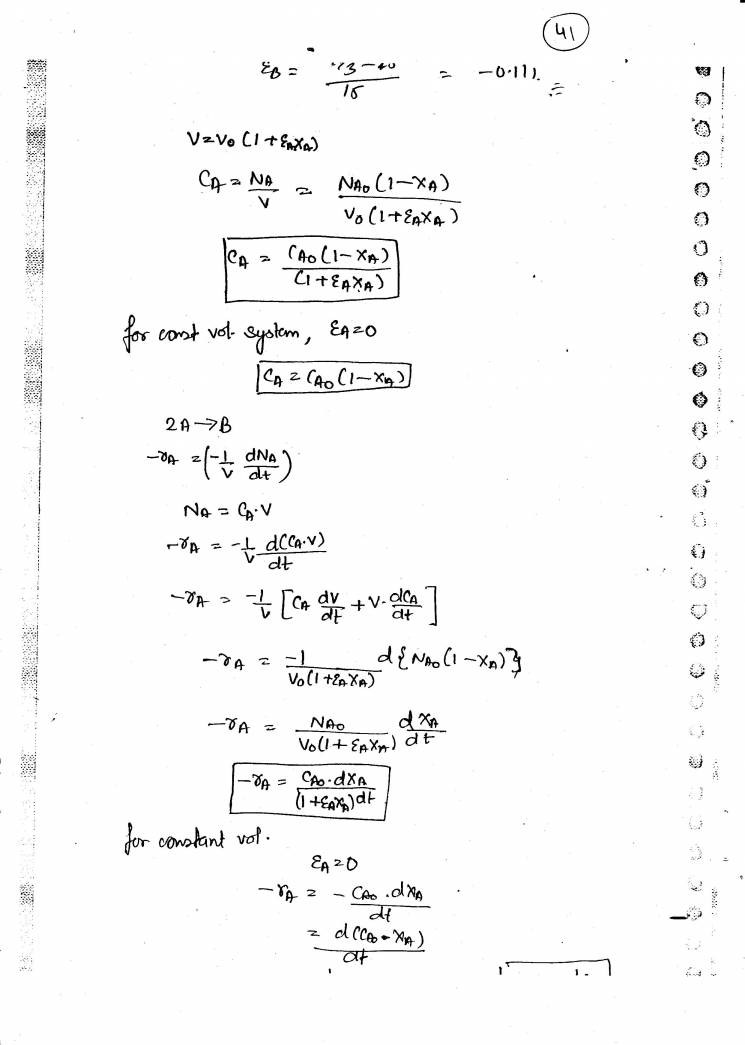 41
ε_B = 3-40 / 18 = -0.111.
V = V₀ (1 + ε_A X_A)
C_A = N_A / V = N_A₀ (1 - X_A) / V₀ (1 + ε_A X_A)
C_A = C_A₀ (1 - X_A) / (1 + ε_A X_A)
for const vol. system, ε_A = 0
C_A = C_A₀ (1 - X_A)
2A → B
-r_A = (-1/V dN_A/dt)
N_A = C_A · V
-r_A = -1/V d(C_A·V)/dt
-r_A = -1/V [C_A dV/dt + V· dC_A/dt]
-r_A = -1 / V₀(1 + ε_A X_A) d{N_A₀(1 - X_A)}
-r_A = N_A₀ / V₀(1 + ε_A X_A) dX_A/dt
-r_A = C_A₀ · dX_A / (1 + ε_A X_A) dt
for constant vol.
ε_A = 0
-r_A = - C_A₀ . dX_A / dt
= d(C_A₀ - X_A) / dt